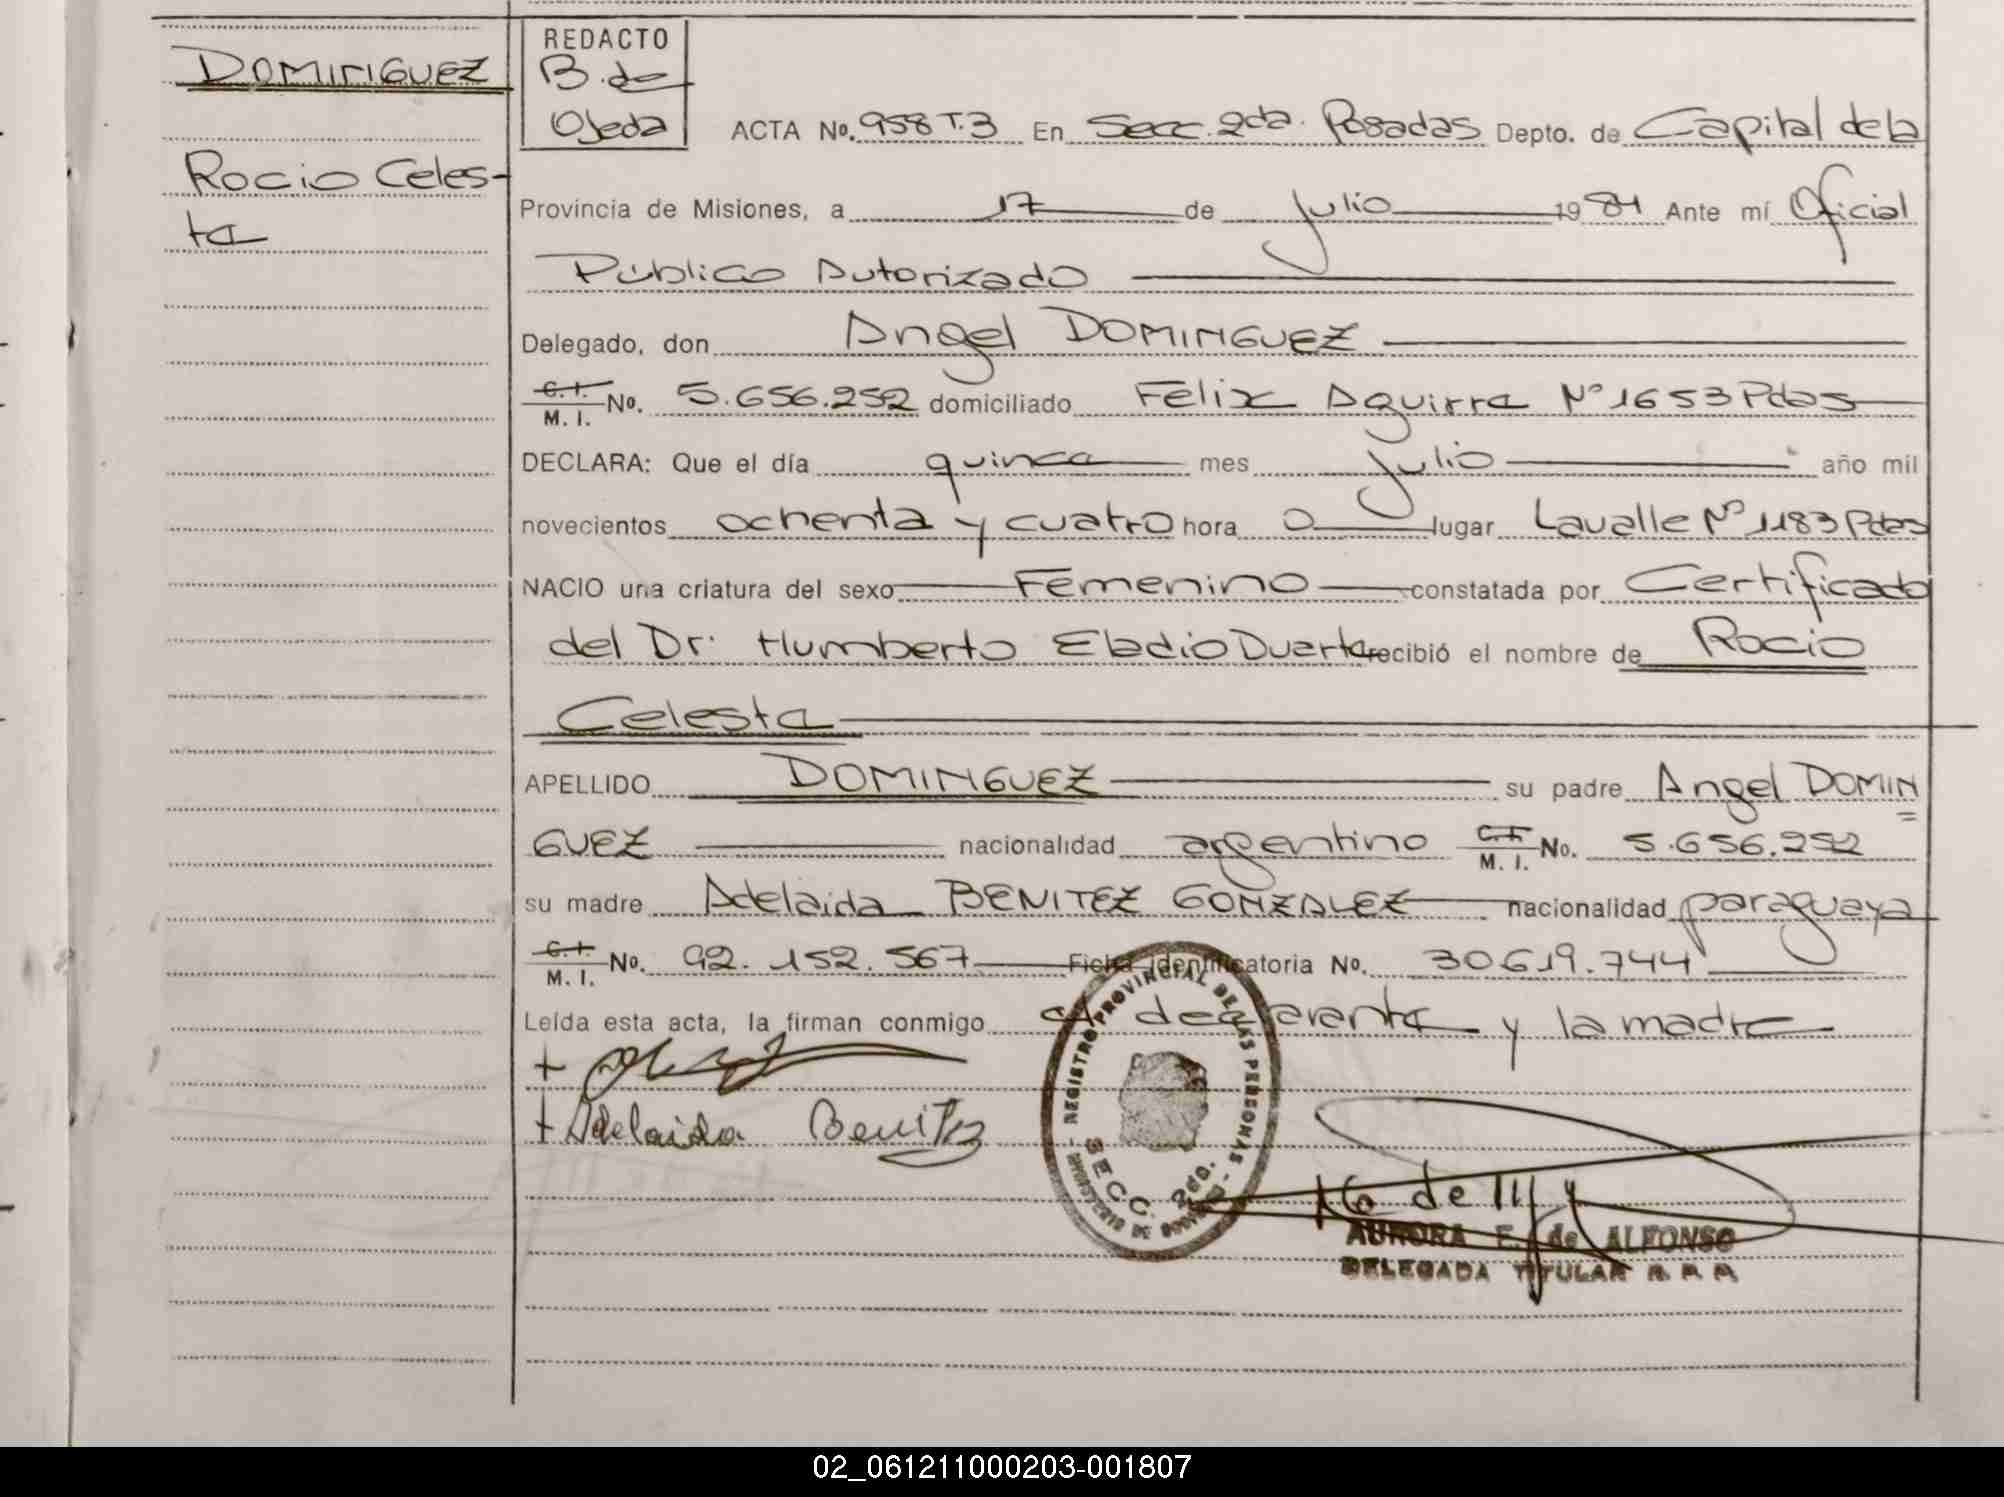 DOMINGUEZ
Rocio Celes-
te
REDACTO
B. de
Ojeda
ACTA No. 958 T.3 En Secc. 2da. Posadas Depto. de Capital de la
Provincia de Misiones, a 17 de julio 1984 Ante mí Oficial
Público Autorizado
Delegado, don Angel DOMINGUEZ
C.I. M.I. No. 5.656.252 domiciliado Felix Aguirre Nº 1653 Pdas
DECLARA: Que el día quince mes julio año mil
novecientos ochenta y cuatro hora 0 lugar Lavalle Nº 1183 Pdas
NACIO una criatura del sexo Femenino constatada por Certificado
del Dr. Humberto Eladio Duarte recibió el nombre de Rocio
Celeste
APELLIDO DOMINGUEZ su padre Angel DOMIN
GUEZ nacionalidad argentino C.I. M.I. No. 5.656.252
su madre Adelaida BENITEZ GONZALEZ nacionalidad paraguaya
C.I. M.I. No. 92.152.567 Ficha identificatoria No. 30619.744
Leída esta acta, la firman conmigo el declarante y la madre
+
+ Adelaida Benitez
REGISTRO PROVINCIAL DE LAS PERSONAS
MINISTERIO DE GOBIERNO
SECC. 2da.
AURORA E. de ALFONSO
DELEGADA TITULAR R.P.P.
02_061211000203-001807